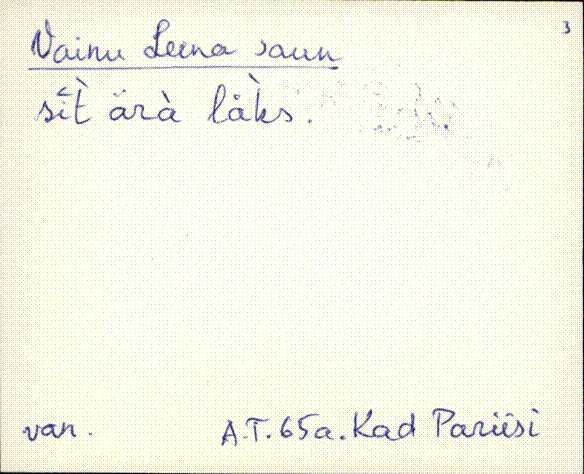 3
Vainu Leena saun
sit̀ ärà låk̀s.
van. A.T. 65a. Kad Pariisi